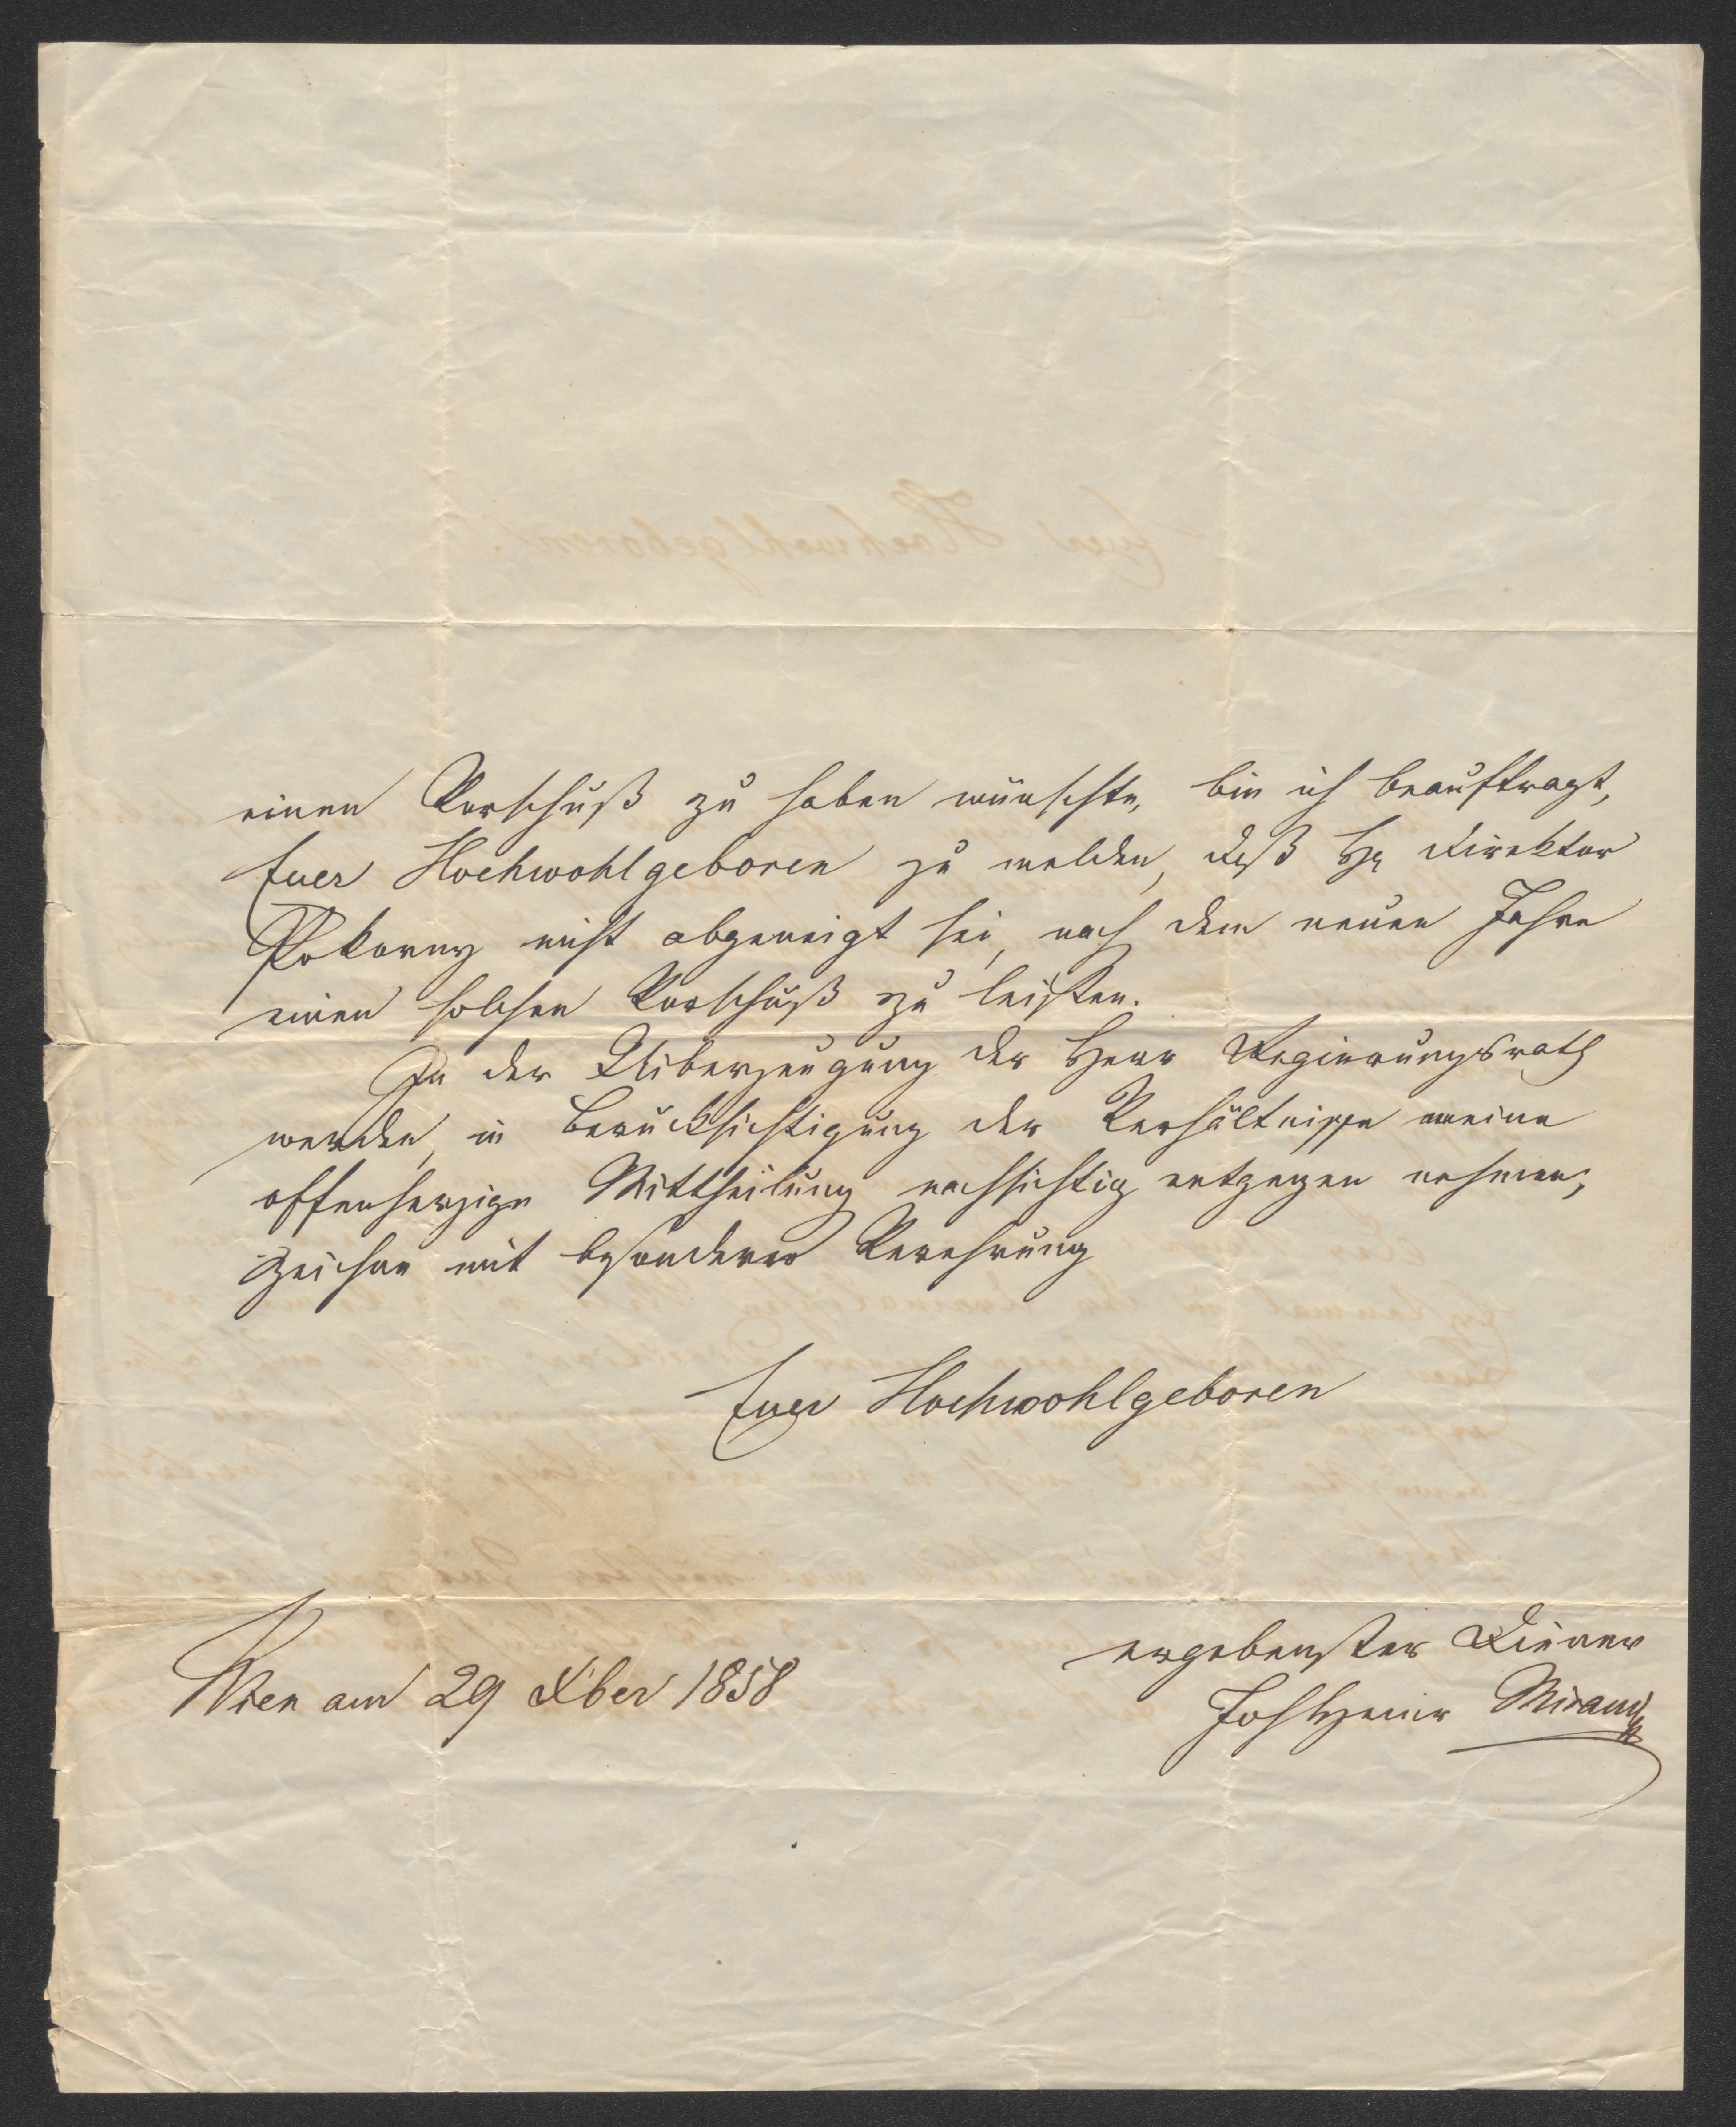 einen Vorschuß zu haben wünschte, bin ich beauftragt,
Euer Hochwohlgeboren zu melden, daß Hr Direktor
Pokorny nicht abgeneigt sei, nach dem neuen Jahre
einen solchen Vorschuß zu leisten.
In der Uiberzeugung der Herr Regierungsrath
werden, in Berücksichtigung der Verhältnisse meine
offenherzige Mittheilung nachsichtig entgegen nehmen,
zeichne mit besonderer Verehrung
Euer Hochwohlgeboren
ergebenster Diener
Wien am 29 Xber 1858
Joh Heinr Mirani